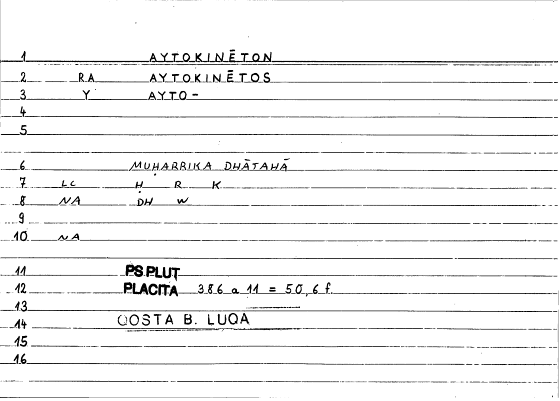 1 AYTOKINĒTON
2 RA AYTOKINĒTOS
3 Y AYTO-
4
5
6 MUḤARRIKA DHĀTAHĀ
7 LC Ḥ R K
8 NA DH W
9
10 NA
11 PS.PLUT
12 PLACITA 386 a 11 = 50,6 f.
13
14 QOSTA B. LUQA
15
16